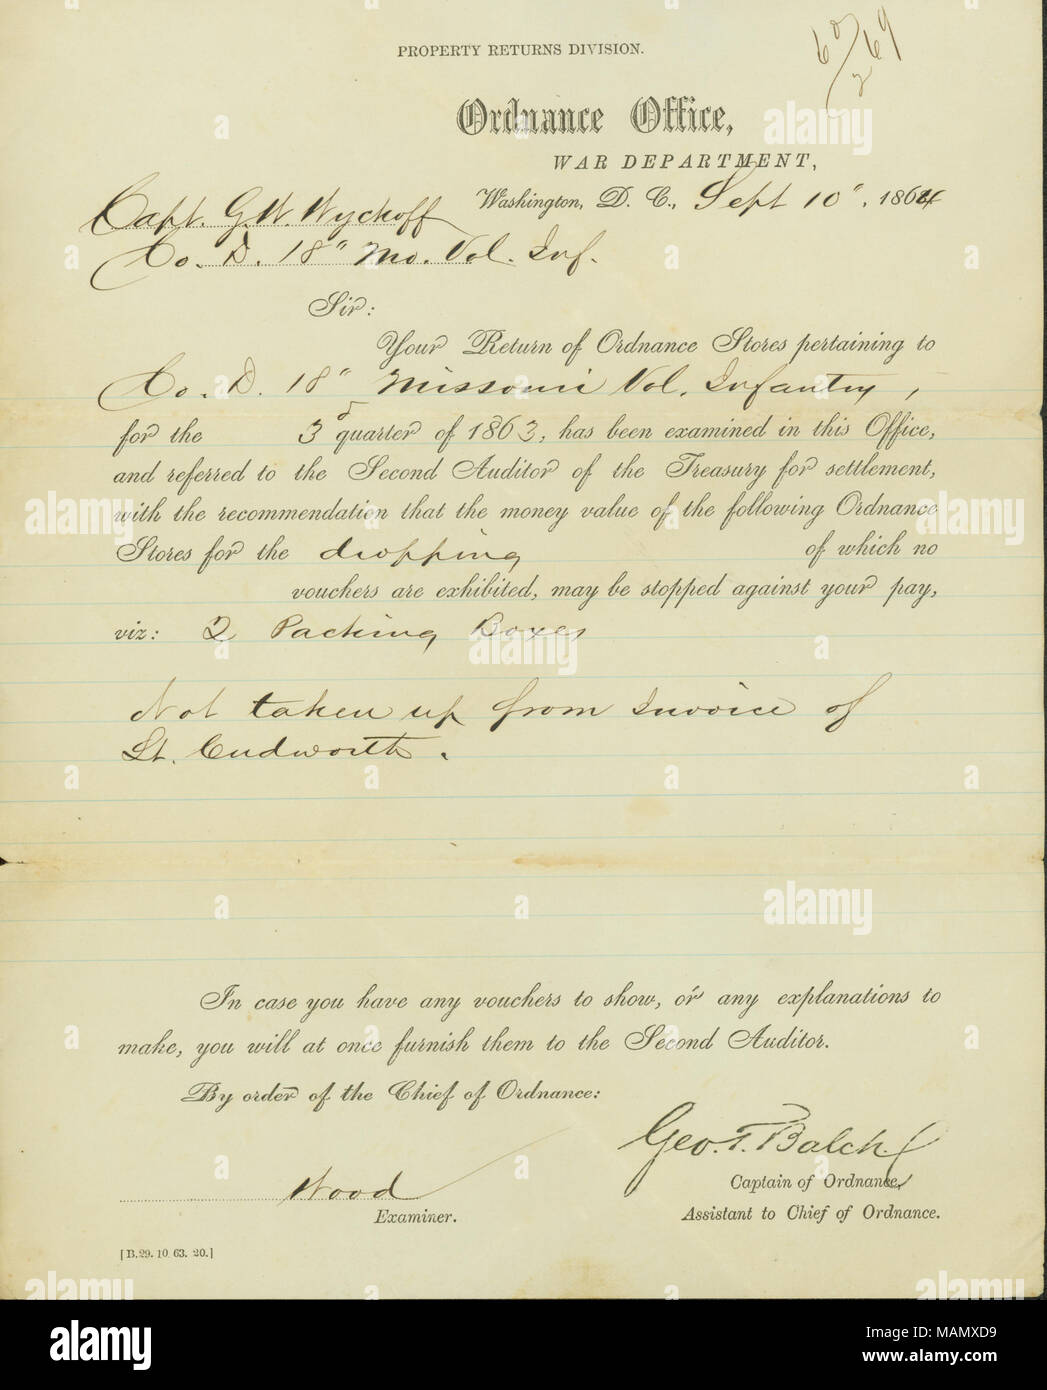 60/269
PROPERTY RETURNS DIVISION.
Ordnance Office,
WAR DEPARTMENT,
Washington, D. C., Sept 10", 1864
Capt. G. W. Wyckoff
Co. D. 18" Mo. Vol. Inf.
Sir:
Your Return of Ordnance Stores pertaining to
Co. D. 18" Missouri Vol. Infantry,
for the 3d quarter of 1863, has been examined in this Office,
and referred to the Second Auditor of the Treasury for settlement,
with the recommendation that the money value of the following Ordnance
Stores for the dropping of which no
vouchers are exhibited, may be stopped against your pay,
viz: 2 Packing Boxes
Not taken up from Invoice of
Lt. Cudworth.
In case you have any vouchers to show, or any explanations to
make, you will at once furnish them to the Second Auditor.
By order of the Chief of Ordnance:
Geo. T. Balch
Captain of Ordnance,
Assistant to Chief of Ordnance.
Wood
Examiner.
[B.29. 10. 63. 20.]
alamy
a alamy stock photo
MAMXD9
www.alamy.com